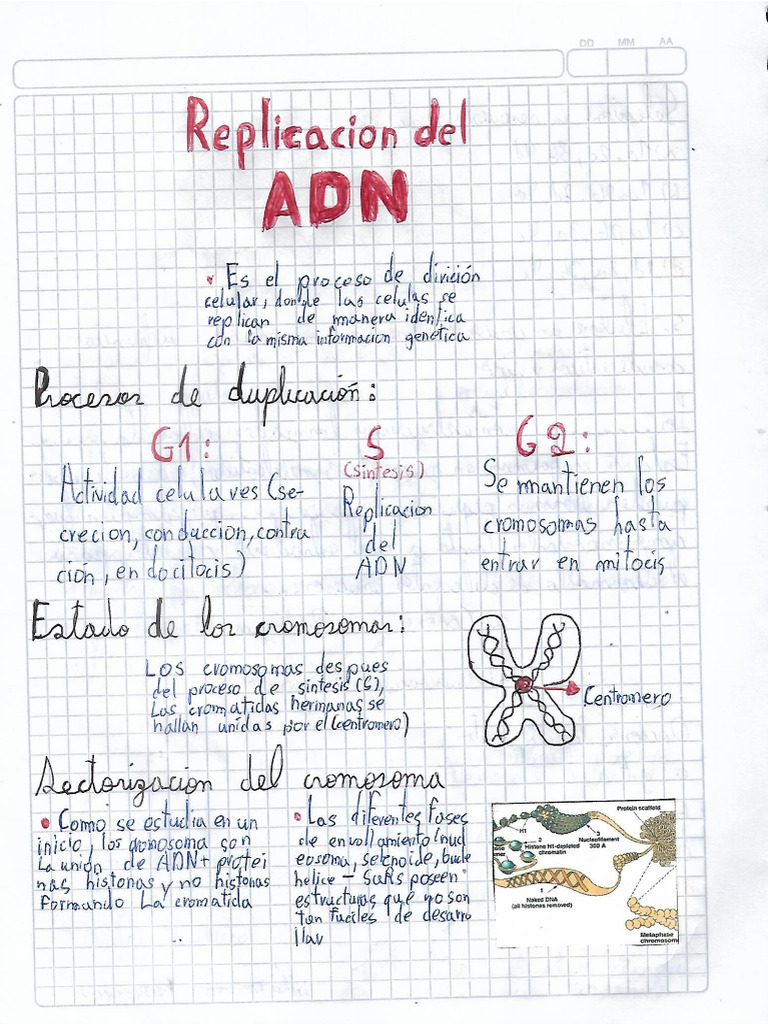 DD MM AA
Replicacion del
ADN
• Es el proceso de división
celular, donde las celulas se
replican de manera identica
con la misma informacion genética
Procesos de duplicación:
G1:
Actividad celulares (se-
crecion, conduccion, contra
ción, endocitocis)
S
(sintesis)
Replicacion
del
ADN
G2:
Se mantienen los
cromosomas hasta
entrar en mitocis
Estado de los cromosomas:
Los cromosomas despues
del proceso de sintesis (S),
Las cromatidas hermanas se
hallan unidas por el (centromero)
Centromero
Sectorización del cromosoma
• Como se estudia en un
inicio, los cromosoma son
La unión de ADN + protei
nas histonas y no histonas
formando La cromatida
• Las diferentes fases
de envollamiento (nucl
eosoma, selenoide, bucle
helice – SaRs poseen
estructuras que no son
tan fuciles de desarro
llar
Protein scaffold
H1
2
Histone H1-depleted
chromatin
3
Nucleofilament
300 A
1
Naked DNA
(all histones removed)
Metaphase
chromosom